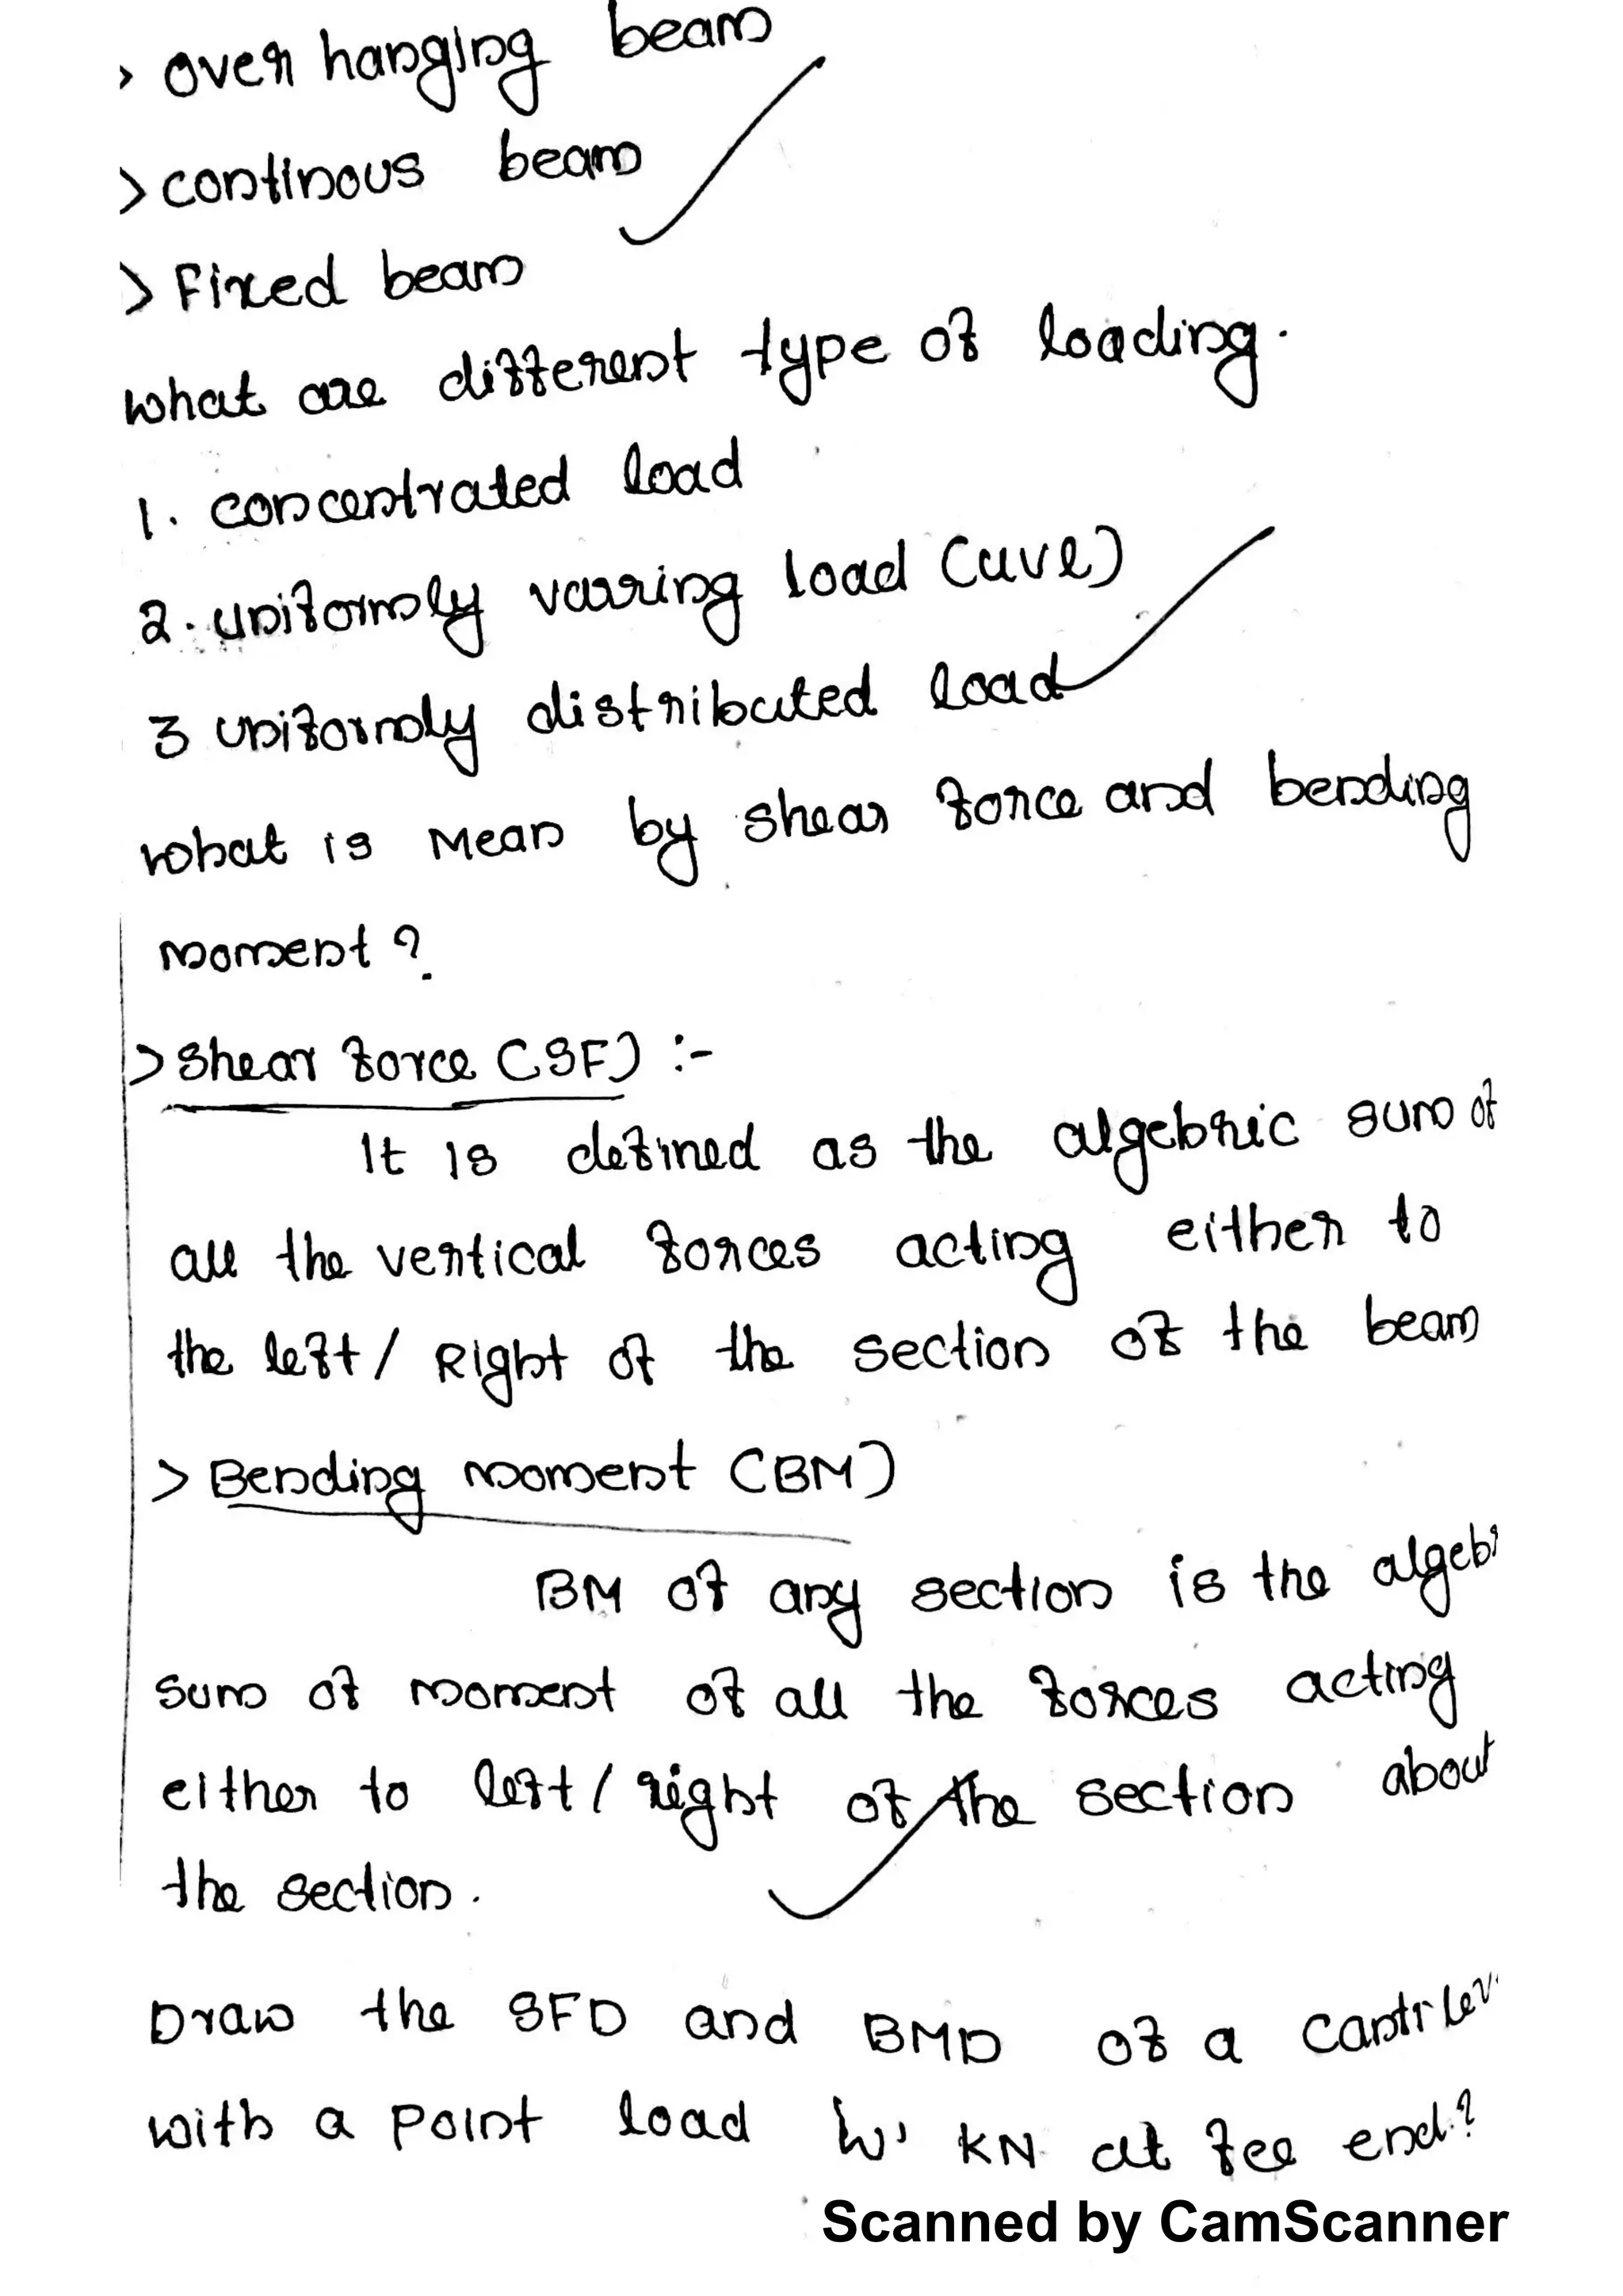 > over hanging beam
> continous beam
> Fixed beam
what are different type of loading.
1. concentrated load
2. uniformly varring load (uvl)
3 uniformly distributed load
what is Mean by shear force and bending
moment?
> shear force (SF) :-
It is defined as the algebric sum of
all the vertical forces acting either to
the left/ Right of the section of the beam
> Bending moment (BM)
BM of any section is the algebr
sum of moment of all the forces acting
either to left/ right of the section about
the section.
Draw the SFD and BMD of a cantilev
with a point load 'w' KN at fee end?
Scanned by CamScanner